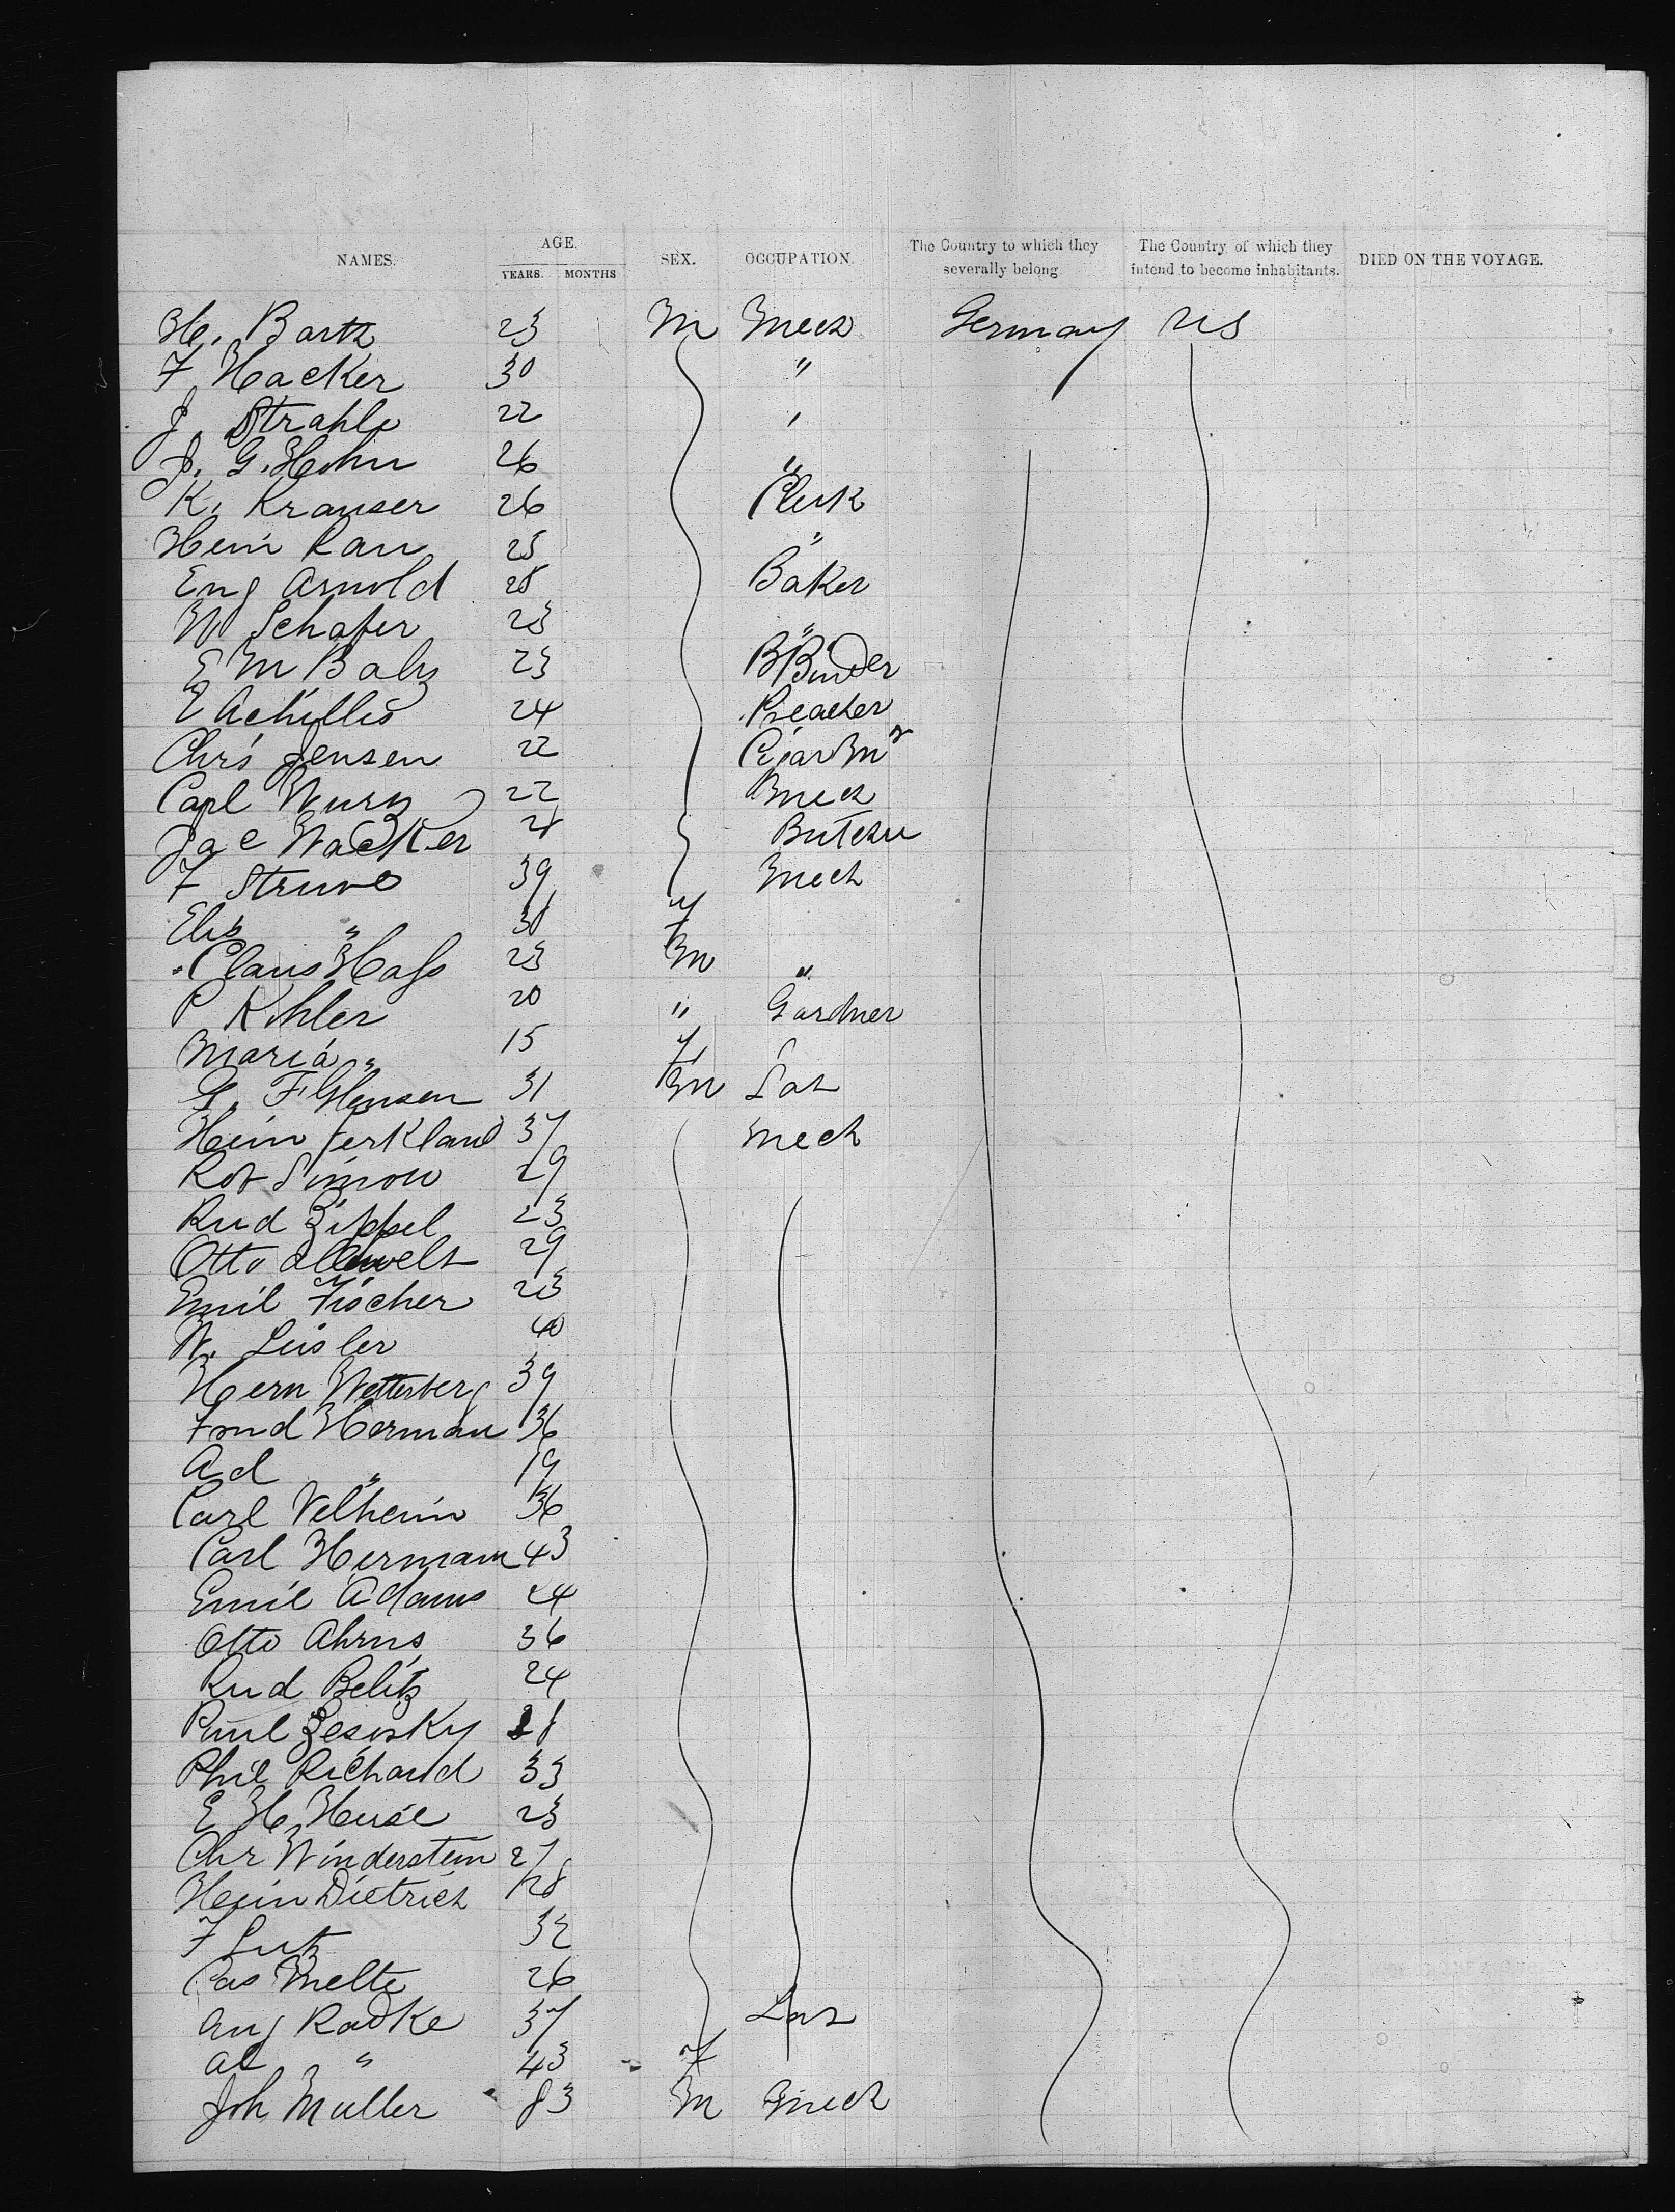 NAMES. AGE. YEARS. MONTHS SEX. OCCUPATION. The Country to which they severally belong. The Country of which they intend to become inhabitants. DIED ON THE VOYAGE.
H. Bartz 23 M Mech Germany US
F Hacker 30 "
J. Strahle 22 "
J. G. Hohn 26 "
K. Krauser 26 Clerk
Hein Rau 25 "
Eug Arnold 28 Baker
W Schafer 23 "
E M Balz 23 BBinder
E Achilles 24 Preacher
Chrs Jensen 22 CigarMr
Carl Wurz 22 Mech
Jac Wacker 28 Butcher
F Struve 39 Mech
Elis " 38 F
Claus Hass 23 M "
P Kohler 20 " Gardner
Maria " 15 F
G. F Hensen 31 M Lab
Hein Jerkland 37 Mech
Rob Simon 29
Rud Zippel 23
Otto 29
Emil Fischer 23
W. Leisler 40
Herm Wetterberg 39
Fend Herman 36
Ad " 19
Carl Velheim 36
Carl Hermann 43
Emil Adams 24
Otto Ahrns 36
Rud Belitz 24
Paul Zesosky 28
Phil Richard 33
E H Heise 23
Chr Winderstein 27
Hein Dietrich 28
F Lutz 32
Cas Melte 26
Aug Radke 37 Lab
Al " 43 F
Joh Muller 83 M Mech